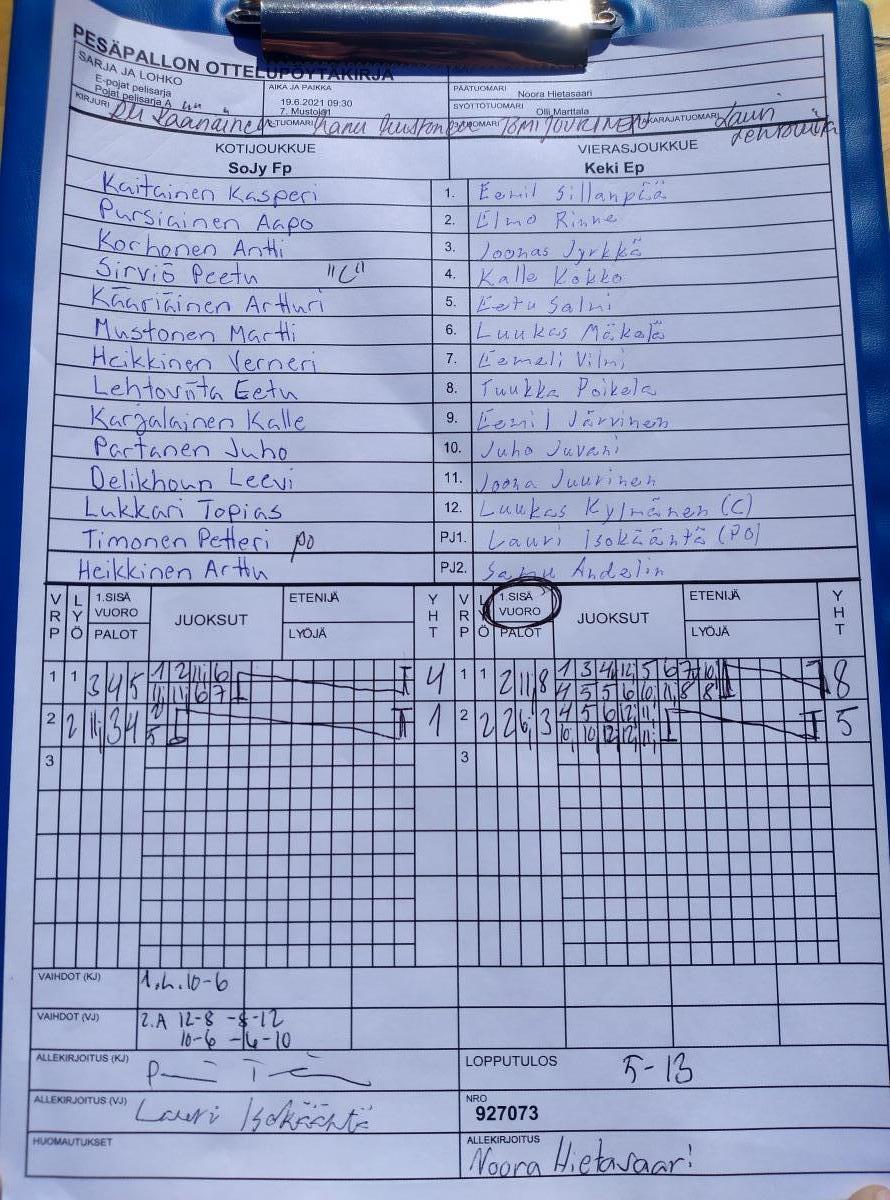 PESÄPALLON OTTELUPÖYTÄKIRJA
SARJA JA LOHKO
E-pojat pelisarja
Pojat pelisarja A
AIKA JA PAIKKA
19.6.2021 09:30
7. Mustolat
PÄÄTUOMARI
Noora Hietasaari
SYÖTTÖTUOMARI
Olli Marttala
KIRJURI
TOMI JUURINEN
TAKARAJATUOMARI Lauri Lehtoviita
KOTIJOUKKUE VIERASJOUKKUE
SoJy Fp Keki Ep
Kaitainen Kasperi 1. Eemil Sillanpää
Pursiainen Aapo 2. Elmo Rinne
Korhonen Antti 3. Joonas Jyrkkä
Sirviö Peetu "C" 4. Kalle Kokko
Kääriäinen Artturi 5. Eetu Salmi
Mustonen Martti 6. Luukas Mäkelä
Heikkinen Verneri 7. Eemeli Vilmi
Lehtoviita Eetu 8. Tuukka Poikela
Karjalainen Kalle 9. Eemil Järvinen
Partanen Juho 10. Juho Juvani
Delikhoun Leevi 11. Joona Juurinen
Lukkari Topias 12. Luukas Kylmänen (C)
Timonen Petteri po PJ1. Lauri Isokääntä (PO)
Heikkinen Arttu PJ2. Samu Andelin
VRP LYÖ 1.SISÄ VUORO PALOT JUOKSUT ETENIJÄ LYÖJÄ YHT VRP LYÖ 1.SISÄ VUORO PALOT JUOKSUT ETENIJÄ LYÖJÄ YHT
1 1 3 4 5 1 2 11 6 I 4 1 1 2 11 8 1 3 4 12 5 6 7 10 I 8
11 11 6 7 4 5 5 6 10 11 8 8
2 2 11 3 4 2 II 1 2 2 2 6 3 4 5 6 12 11 I 5
5 10 10 12 12 11
3 3
VAIHDOT (KJ) 1.L.10-6
VAIHDOT (VJ) 2.A 12-8 -8-12
10-6 -6-10
ALLEKIRJOITUS (KJ)
LOPPUTULOS 5-13
ALLEKIRJOITUS (VJ) Lauri Isokääntä
NRO
927073
HUOMAUTUKSET
ALLEKIRJOITUS
Noora Hietasaari